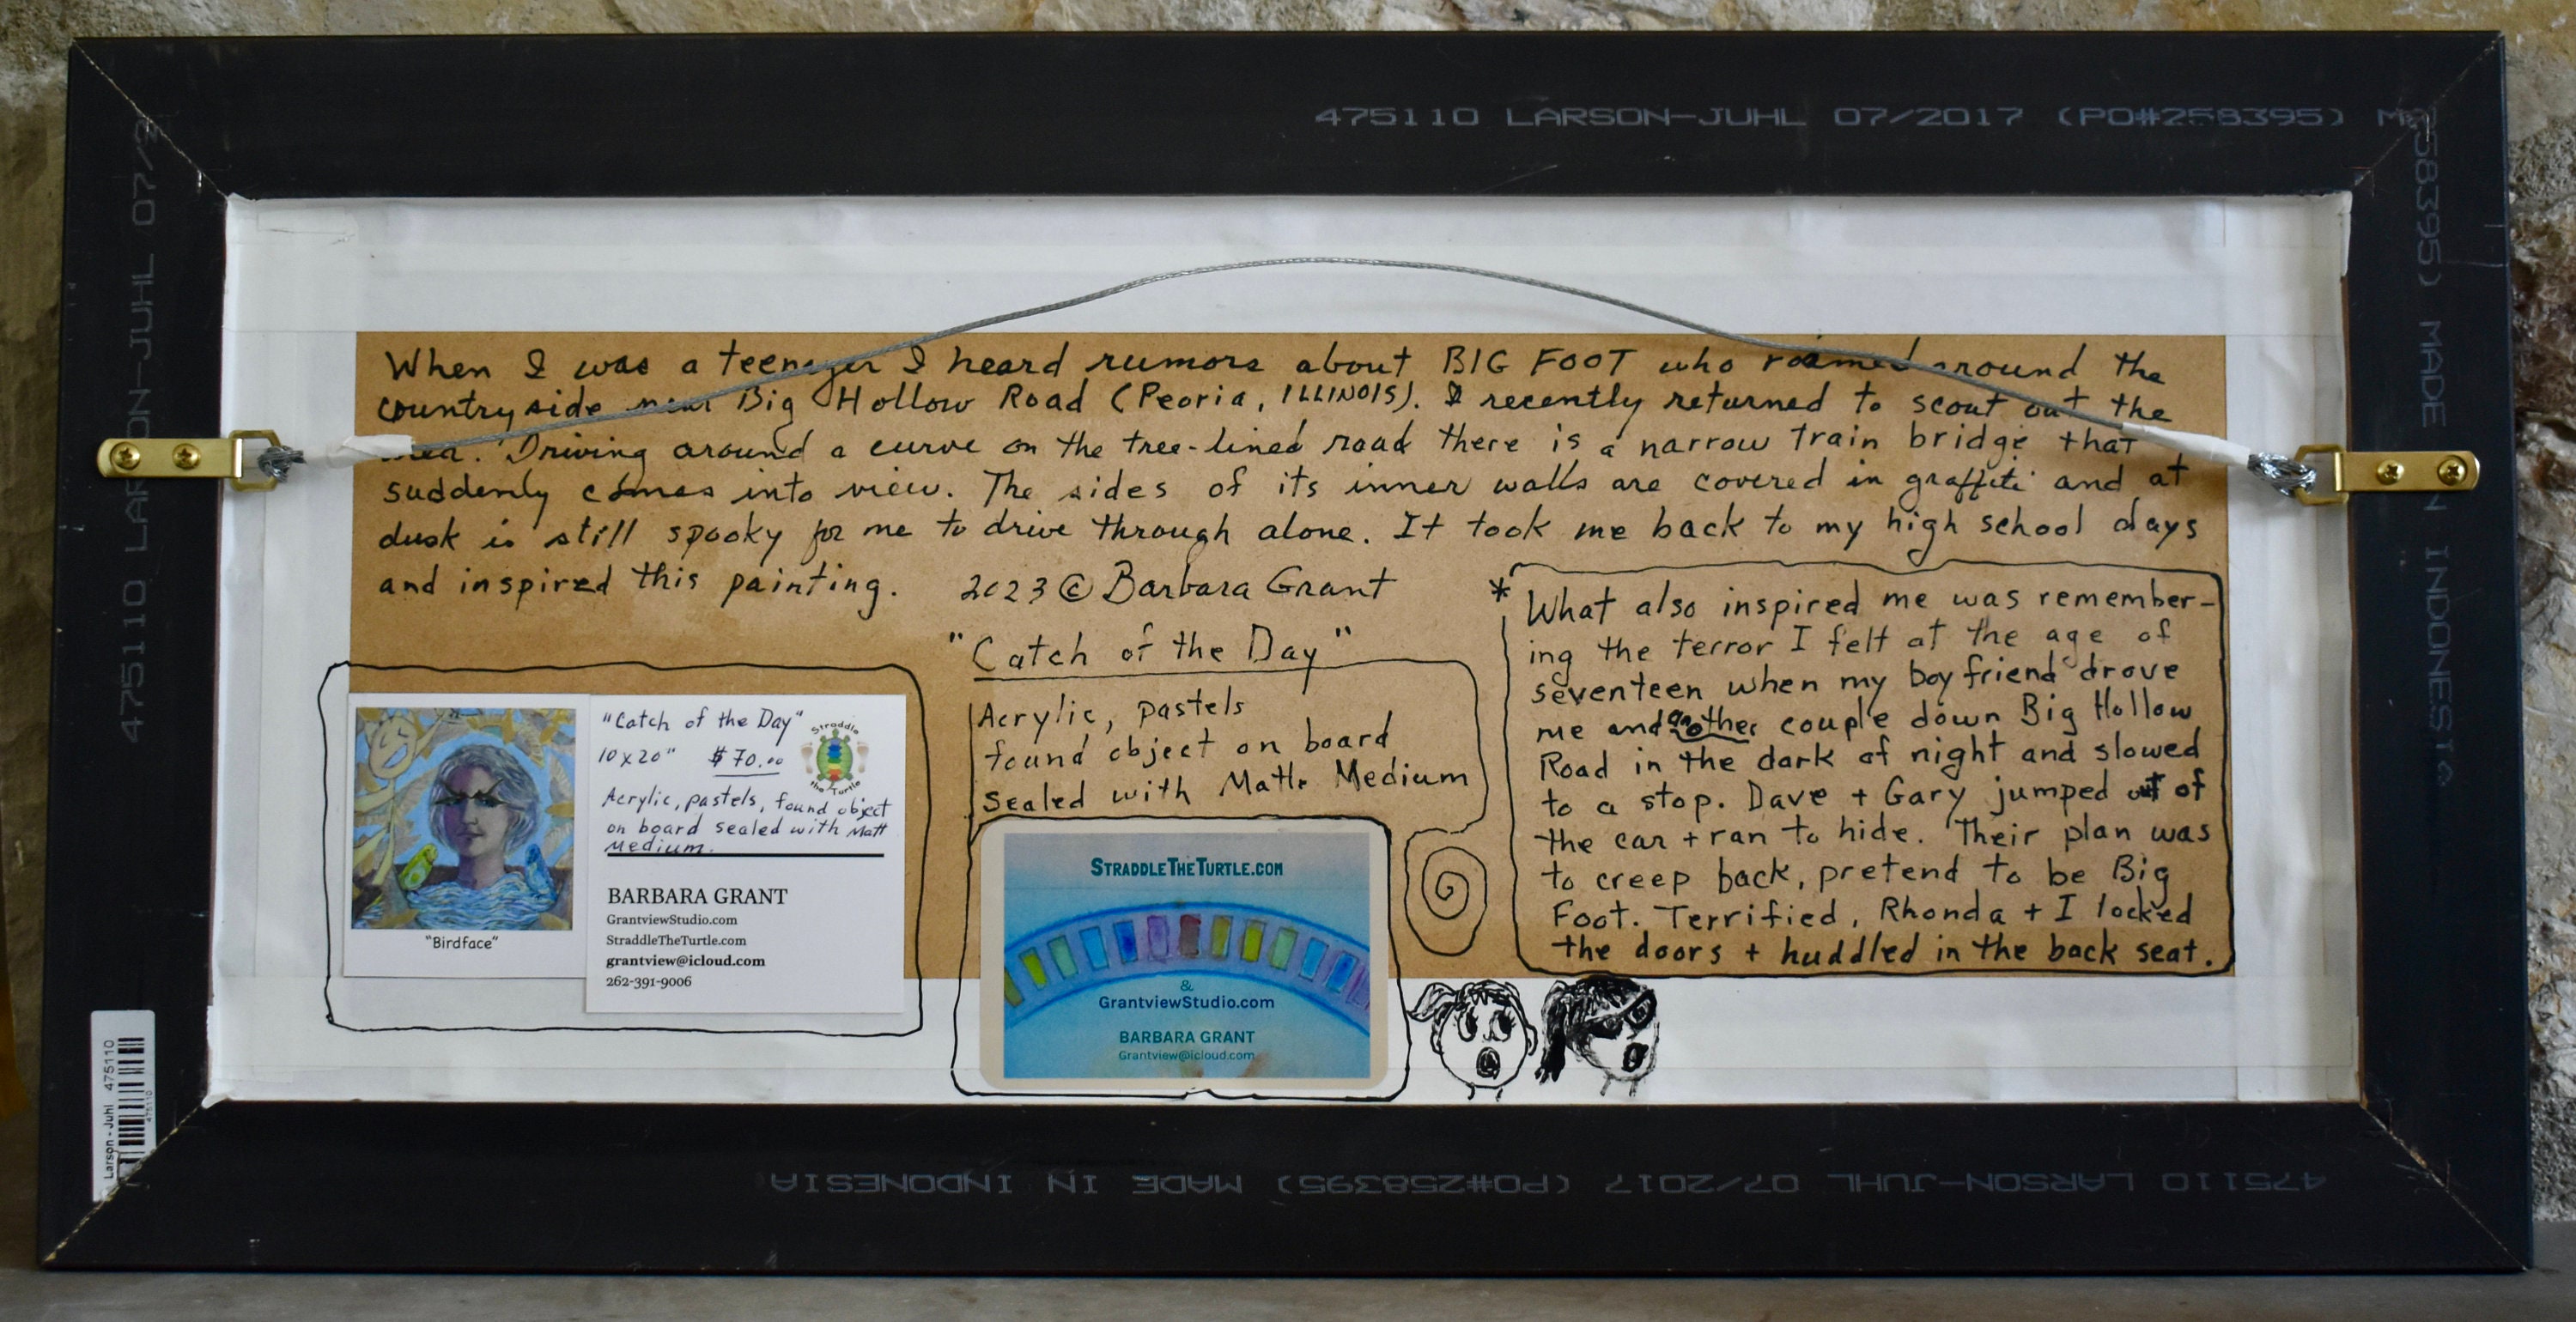 475110 LARSON-JUHL 07/2017 (PO#258395) M
475110 LARSON-JUHL 07/2
58395) MADE IN INDONESIA
When I was a teenager I heard rumors about BIG FOOT who roamed around the
countryside near Big Hollow Road (Peoria, ILLINOIS). I recently returned to scout out the
area. Driving around a curve on the tree-lined road there is a narrow train bridge that
suddenly comes into view. The sides of its inner walls are covered in graffiti and at
dusk is still spooky for me to drive through alone. It took me back to my high school days
and inspired this painting. 2023 © Barbara Grant
"Catch of the Day"
Acrylic, pastels
found object on board
sealed with Matte Medium
* What also inspired me was remember-
ing the terror I felt at the age of
seventeen when my boyfriend drove
me and another couple down Big Hollow
Road in the dark of night and slowed
to a stop. Dave + Gary jumped out of
the car + ran to hide. Their plan was
to creep back, pretend to be Big
Foot. Terrified, Rhonda + I locked
the doors + huddled in the back seat.
"Birdface"
"Catch of the Day"
10x20" $70.00
Straddle
the Turtle
Acrylic, pastels, found object
on board sealed with Matt
Medium.
BARBARA GRANT
GrantviewStudio.com
StraddleTheTurtle.com
grantview@icloud.com
262-391-9006
STRADDLETHETURTLE.COM
&
GrantviewStudio.com
BARBARA GRANT
Grantview@icloud.com
Larson-Juhl 475110
475110
475110 LARSON-JUHL 07/2017 (PO#258395) MADE IN INDONESIA